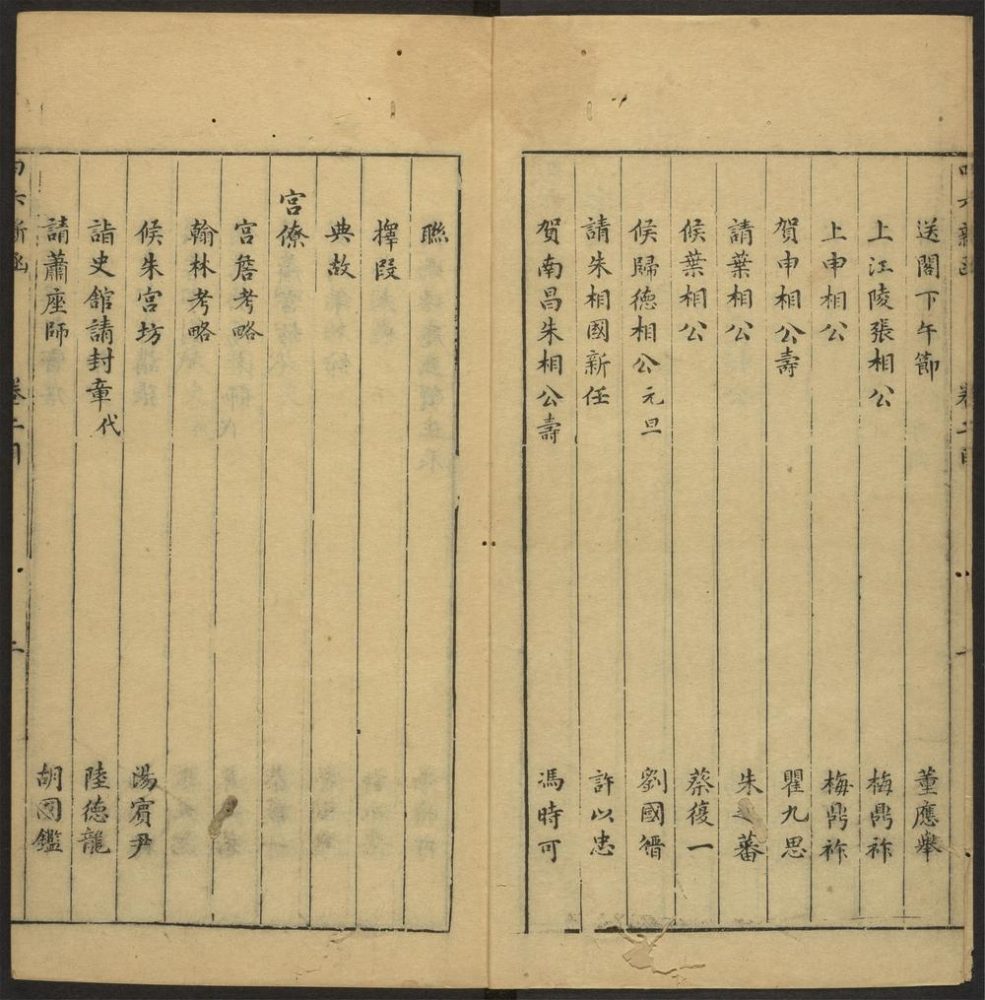 送閣下午節 董應舉
上江陵張相公 梅鼎祚
上申相公 梅鼎祚
賀申相公壽 瞿九思
請葉相公 朱 蕃
候葉相公 蔡復一
候歸德相公元旦 劉國縉
請朱相國新任 許以忠
賀南昌朱相公壽 馮時可
聯
擇段
典故
宮僚
宮詹考略
翰林考略
候朱宮坊 湯賓尹
詣史館請封章代 陸德龍
請蕭座師 胡國鑑
四六新函 卷二目 二